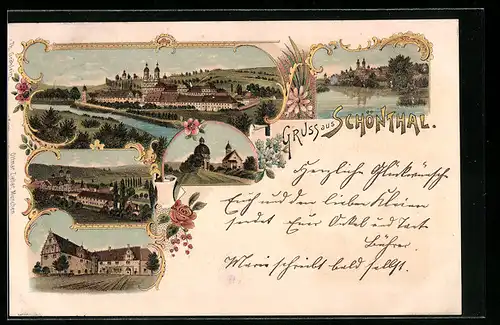 GRUSS aus SCHÖNTHAL.
Herzliche Glückwünsche
Euch und den lieben Kleinen
sendet Eure Onkel und Tante
Bührer.
Marie schreibt bald selbst.